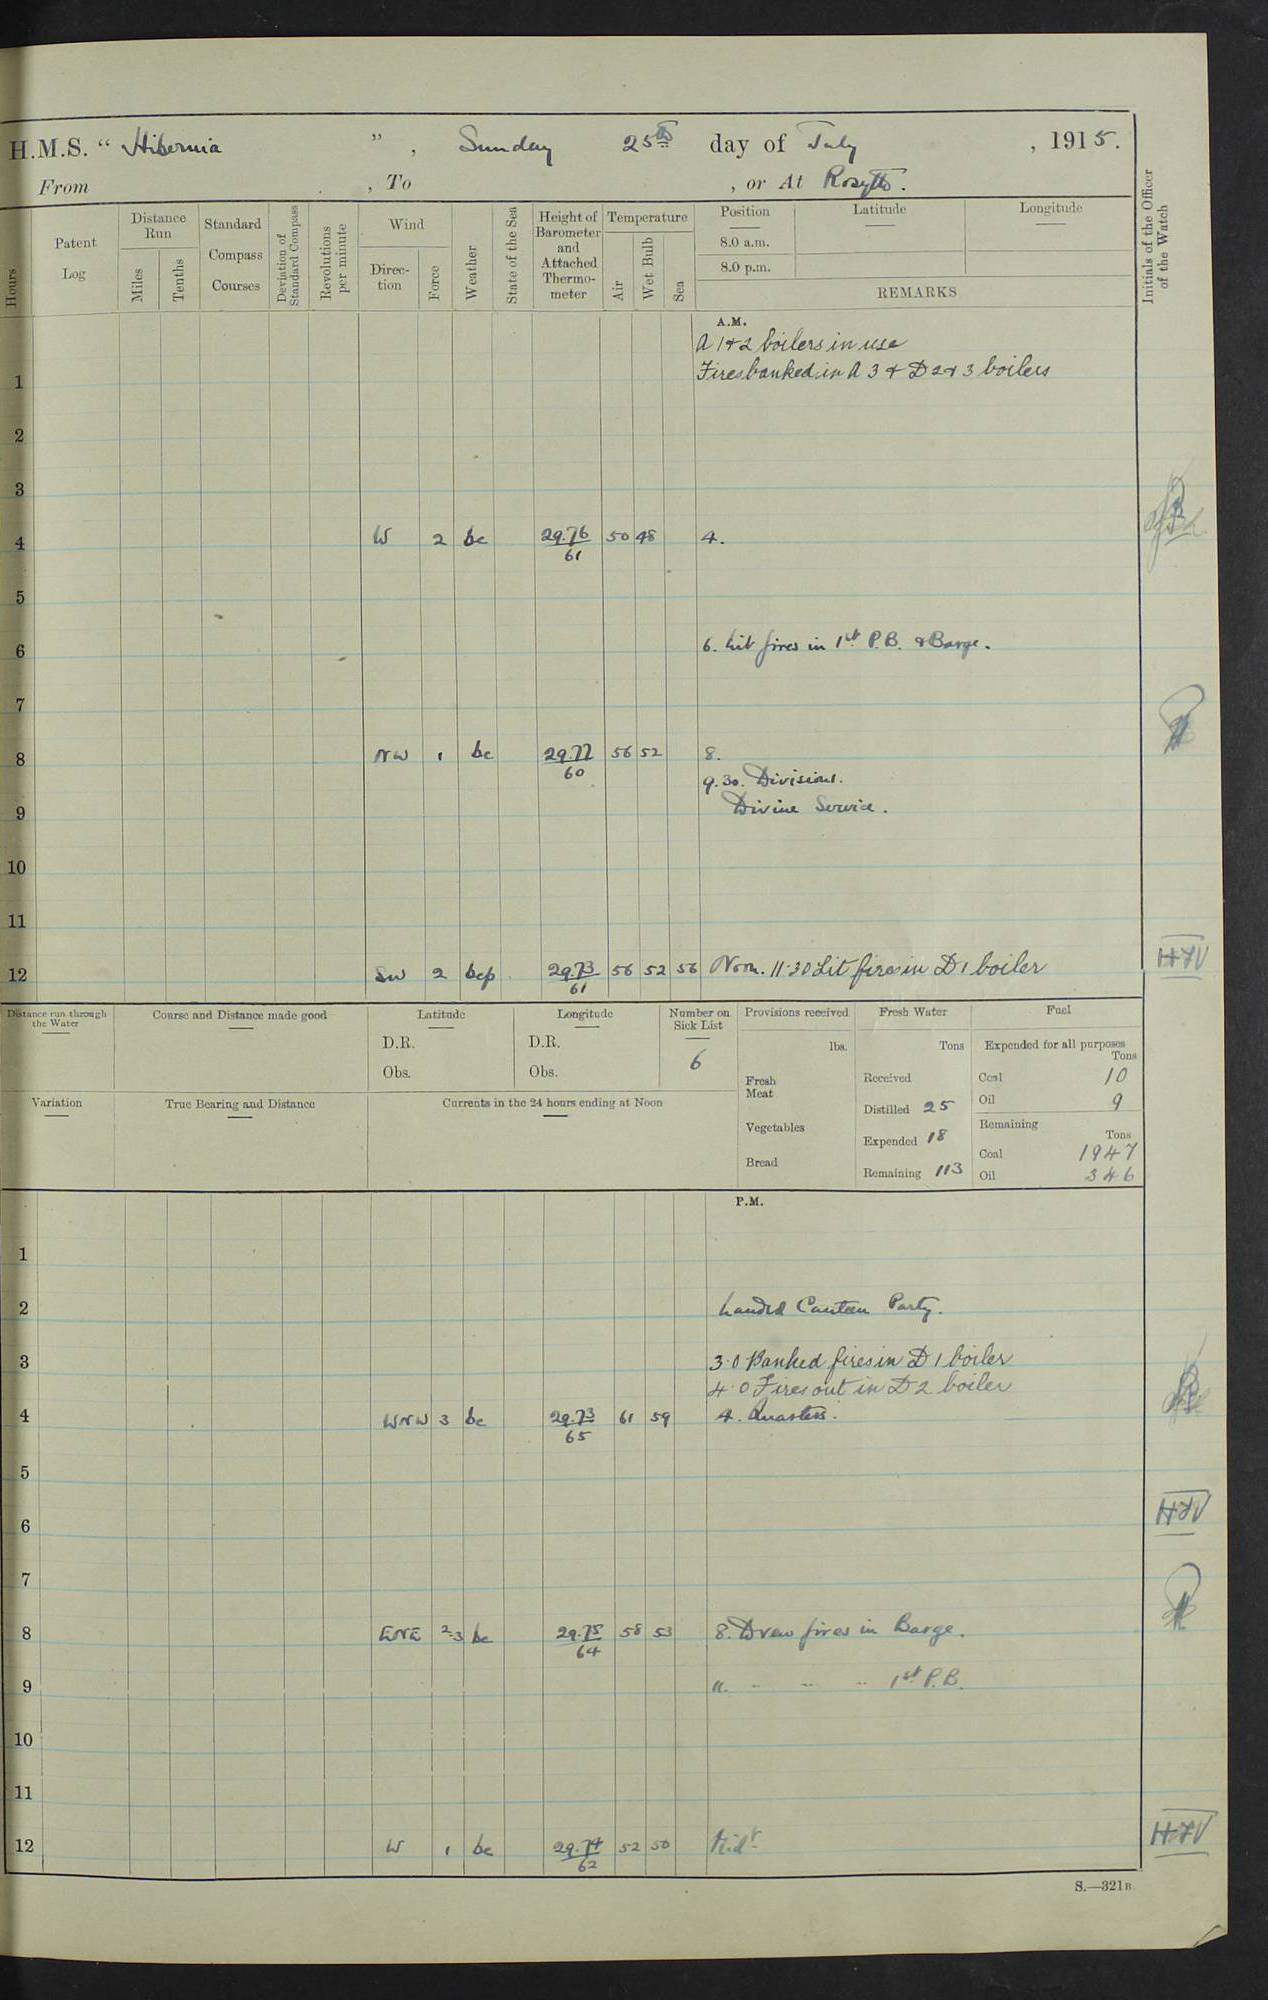 H.M.S. “ Hibernia ” , Sunday 25th day of July , 1915.
From , To , or At Rosyth.
Hours
Patent Log
Distance Run
Miles
Tenths
Standard Compass Courses
Deviation of Standard Compass
Revolutions per minute
Wind
Direc-tion
Force
Weather
State of the Sea
Height of Barometer and Attached Thermo-meter
Temperature
Air
Wet Bulb
Sea
Position
8.0 a.m.
8.0 p.m.
Latitude
Longitude
REMARKS
Initials of the Officer of the Watch
A.M.
A 1 & 2 boilers in use
1 Fires banked in A 3 & D 2 & 3 boilers
2
3
4 W 2 bc 29.76/61 50 48 4.
5
6 6. Lit fires in 1st P.B. & Barge.
7
8 NW 1 bc 29.77/60 56 52 8.
9.30. Divisions.
9 Divine Service.
10
11
12 SW 2 bcp 29.73/61 56 52 56 Noon. 11.30 Lit fires in D 1 boiler HFV
Distance run through the Water
Course and Distance made good
Latitude
D.R.
Obs.
Longitude
D.R.
Obs.
Number on Sick List
6
Provisions received
lbs.
Fresh Meat
Vegetables
Bread
Fresh Water
Tons
Received
Distilled 25
Expended 18
Remaining 113
Fuel
Expended for all purposes
Tons
Coal 10
Oil 9
Remaining
Tons
Coal 1947
Oil 346
Variation
True Bearing and Distance
Currents in the 24 hours ending at Noon
P.M.
1
2 Landed Canteen Party.
3 3.0 Banked fires in D 1 boiler
4.0 Fires out in D 2 boiler
4 WNW 3 bc 29.73/65 61 59 4. Quarters.
5
6 HFV
7
8 ENE 2-3 bc 29.75/64 58 53 8. Drew fires in Barge.
9 11. " " " 1st P.B.
10
11
12 W 1 bc 29.74/62 52 50 Midt HFV
S.—321B.